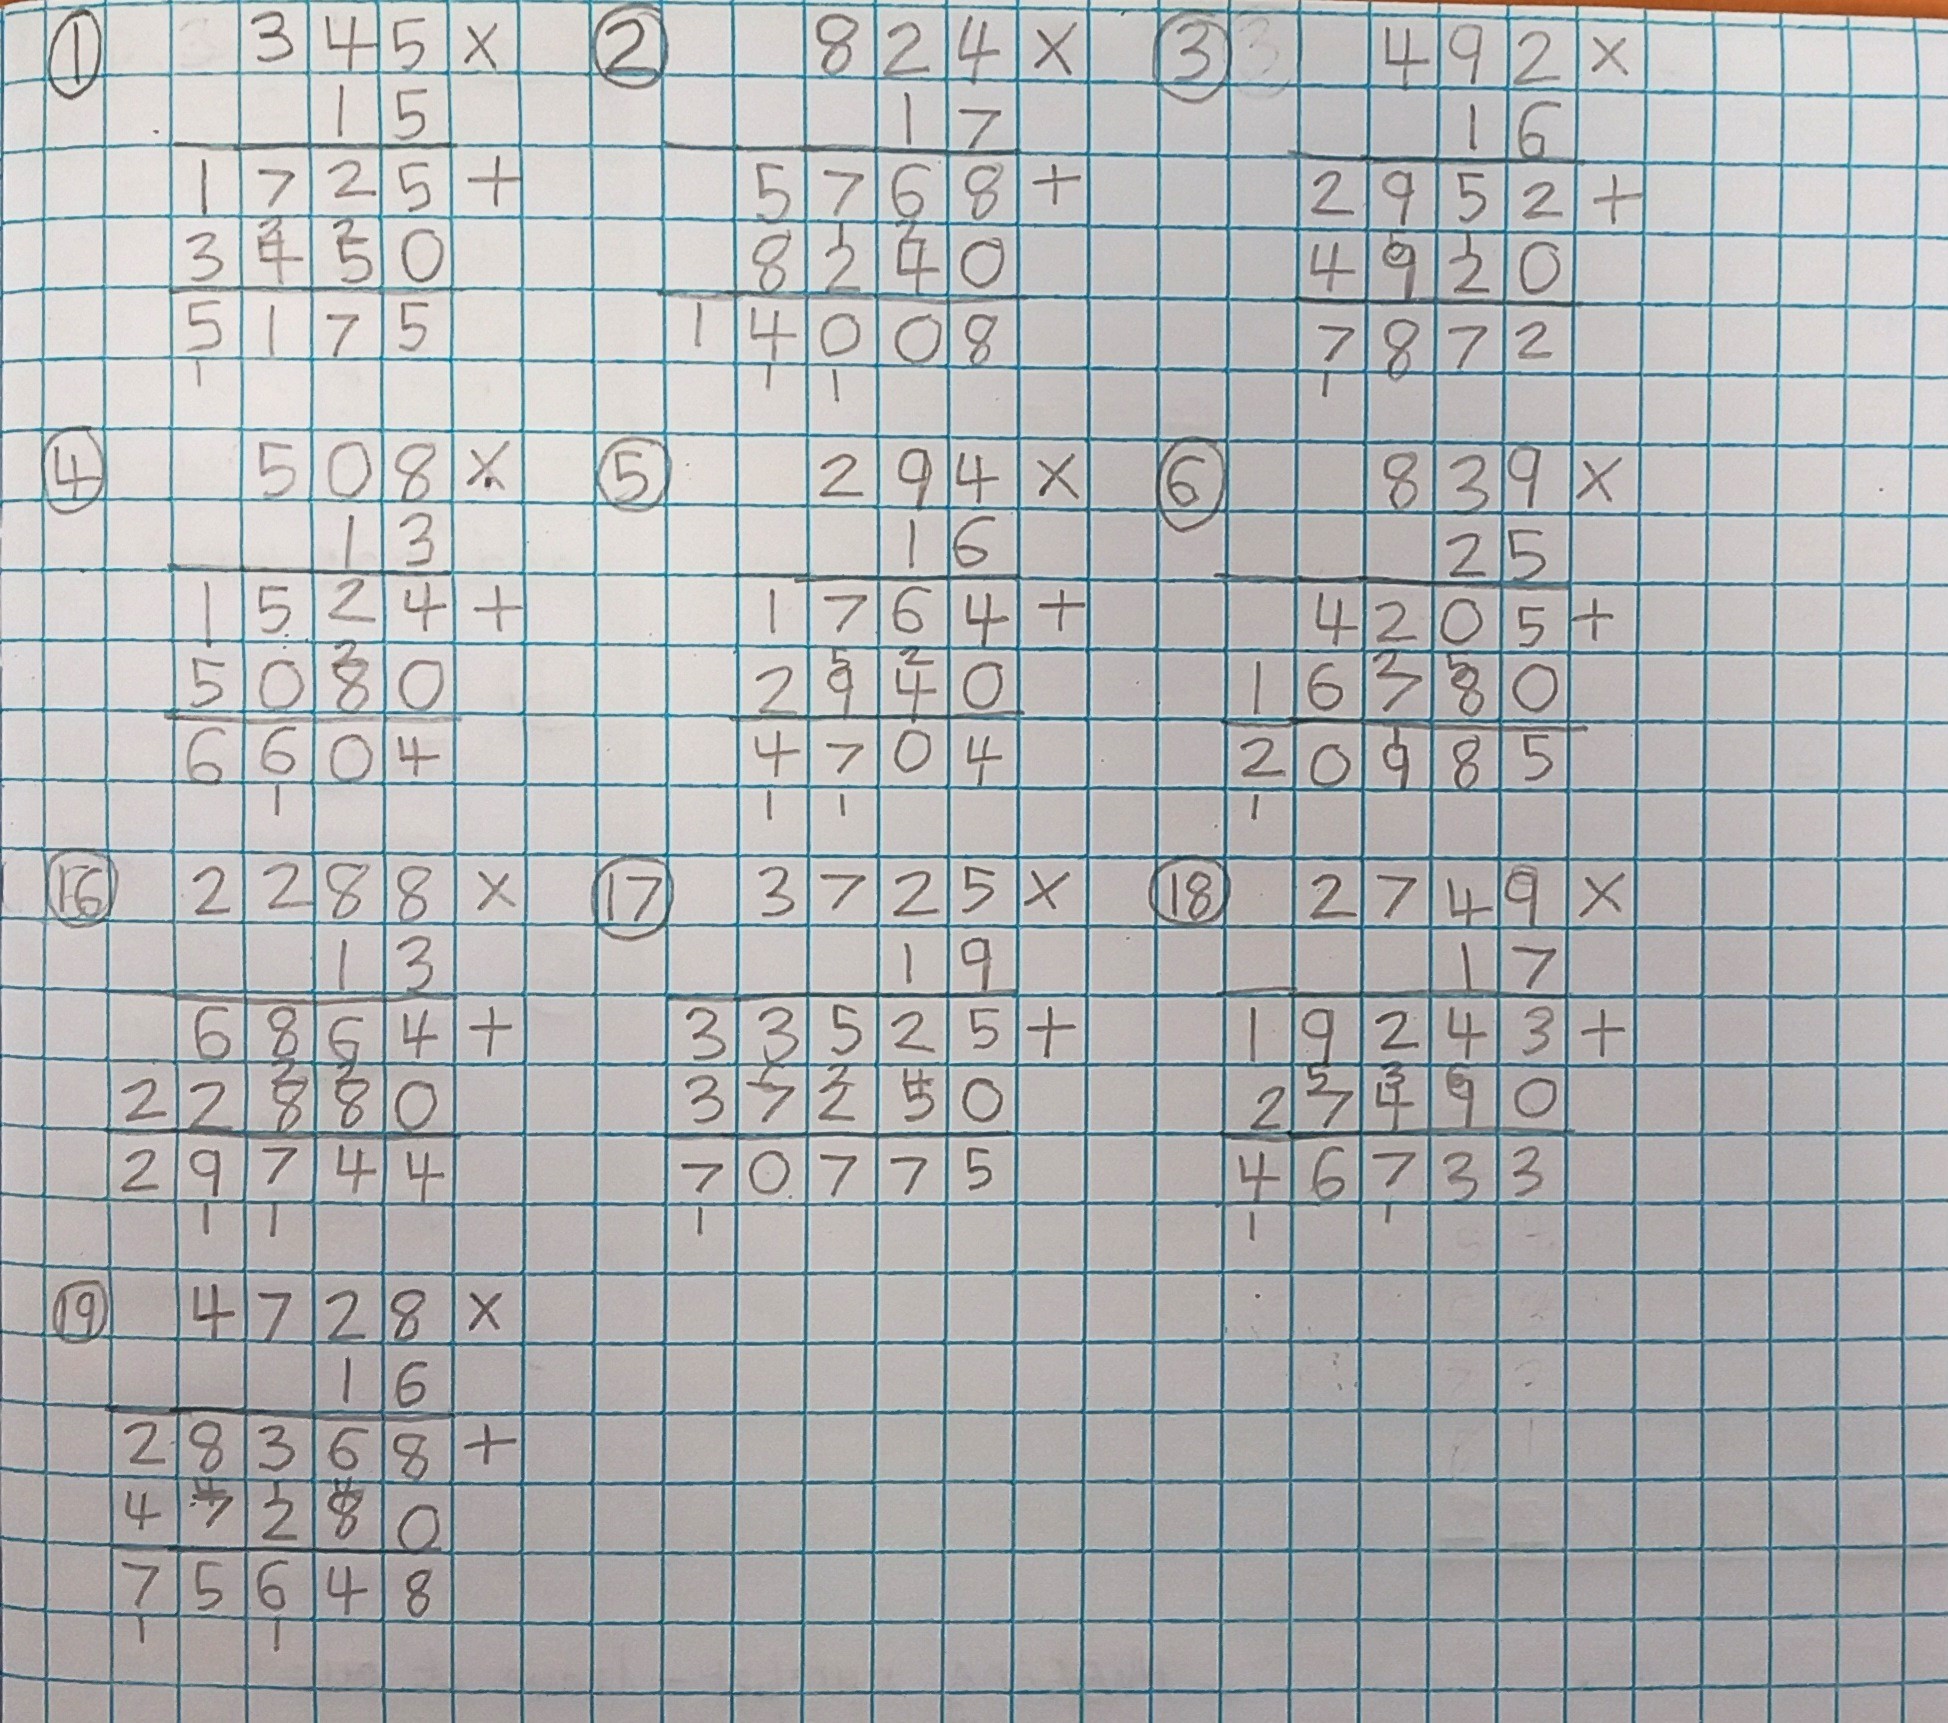 ① 345 × ② 824 × ③ 492 ×
15 17 16
1725 + 5768 + 2952 +
3450 8240 4920
5175 14008 7872
1 1 1 1
④ 508 × ⑤ 294 × ⑥ 839 ×
13 16 25
1524 + 1764 + 4205 +
5080 2940 16780
6604 4704 20985
1 1 1 1
⑯ 2288 × ⑰ 3725 × ⑱ 2749 ×
13 19 17
6864 + 33525 + 19243 +
22880 37250 27490
29744 70775 46733
1 1 1 1 1
⑲ 4728 ×
16
28368 +
47280
75648
1 1